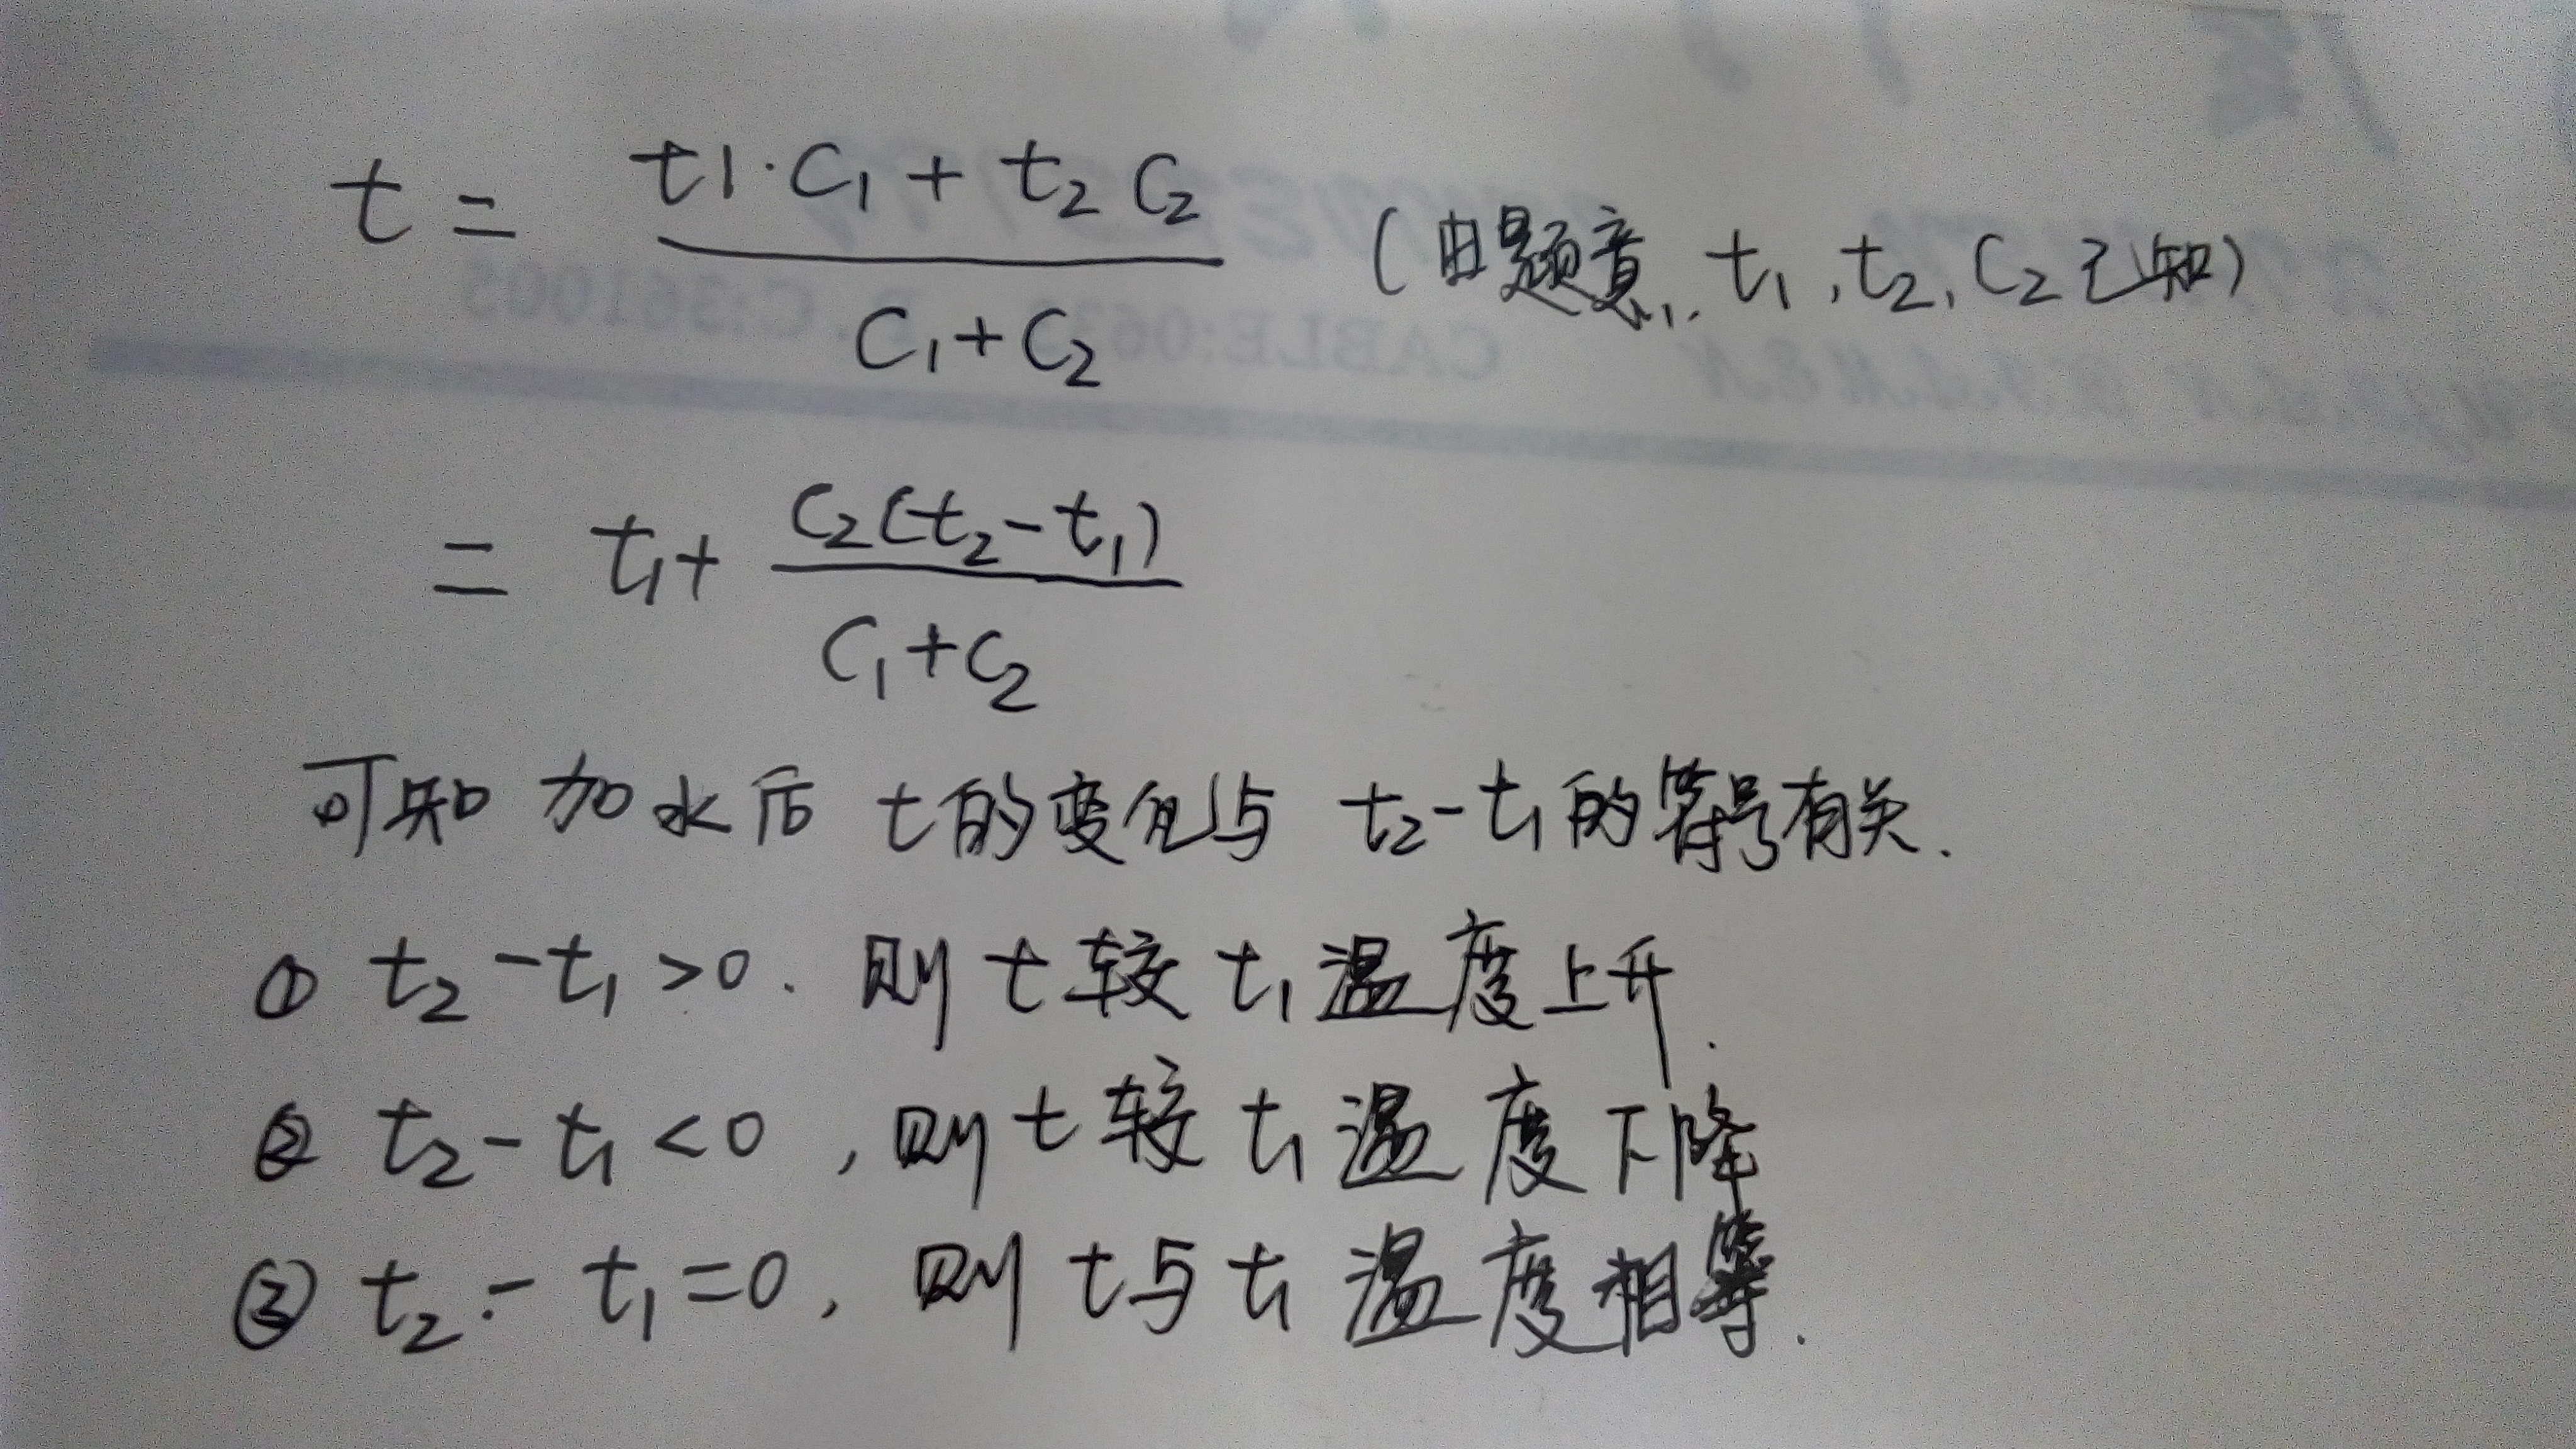 t = (t1·C₁ + t₂ C₂) / (C₁ + C₂) (由题意, t₁, t₂, C₂ 已知)
= t₁ + C₂(t₂ - t₁) / (C₁ + C₂)
可知 加水后 t的变化与 t₂-t₁的符号有关.
① t₂ - t₁ >0. 则 t 较 t₁ 温度上升.
② t₂ - t₁ <0, 则 t 较 t₁ 温度下降
③ t₂ - t₁ =0, 则 t与 t₁ 温度相等.
CABLE:063 P.C:361005